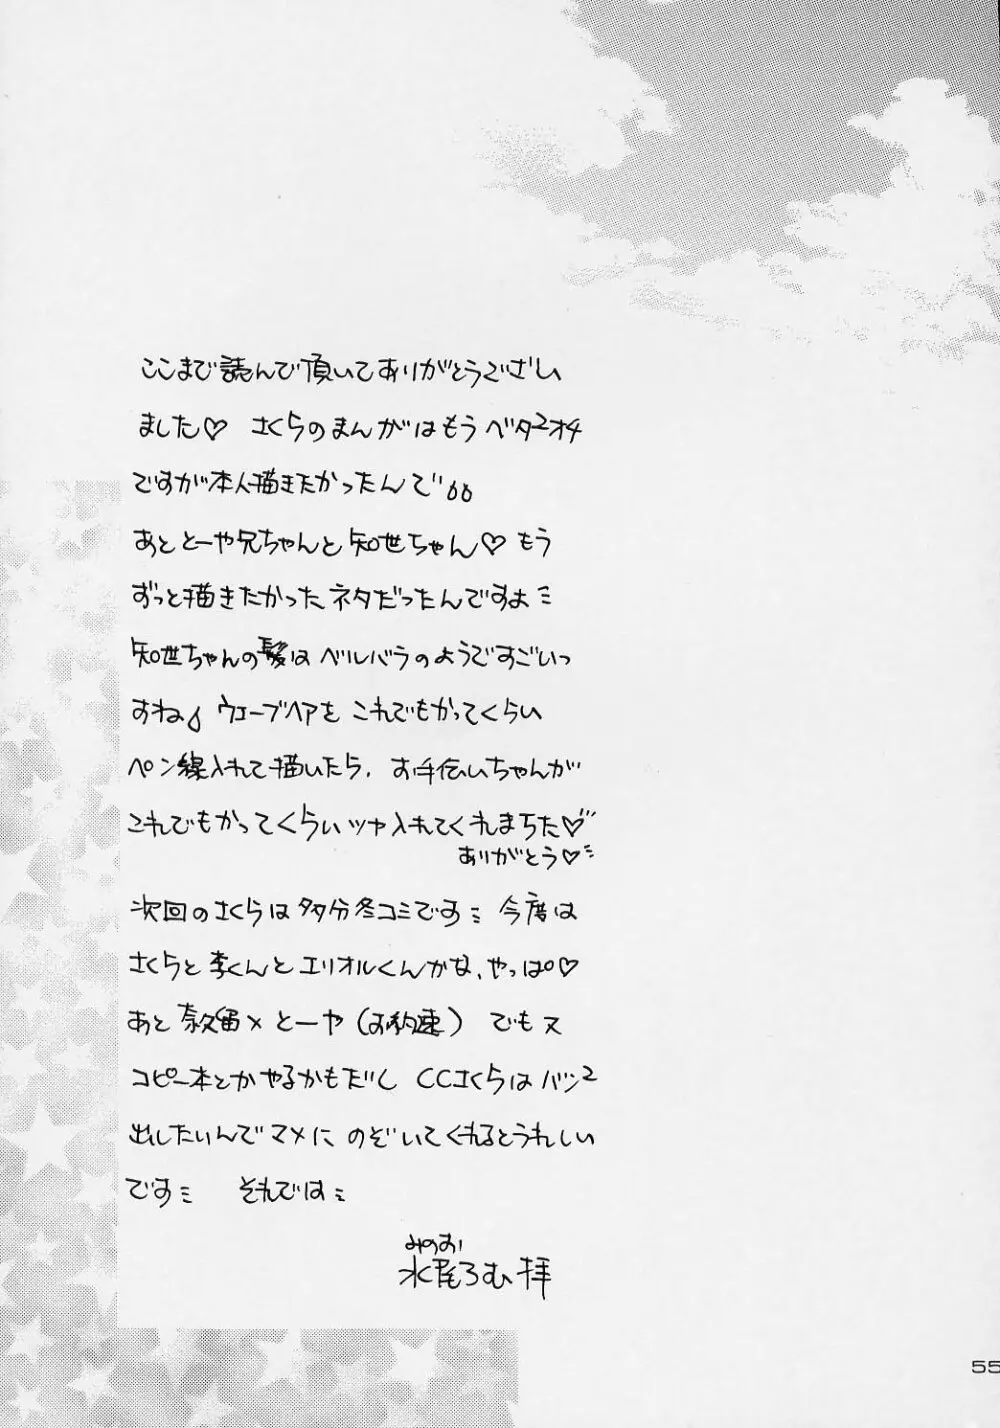 ここまで読んで頂いてありがとうござい
ました♡ さくらのまんがはもう ベタ2オチ
ですが本人描きたかったんで
あと とーや兄ちゃんと 知世ちゃん♡ もう
ずっと描きたかった ネタだったんですよ
知世ちゃんの髪は ベルバラのようですごいっ
すね ウエーブヘアを これでもかってくらい
ペン線入れて描いたら、お手伝いちゃんが
これでもかってくらい ツヤ入れてくれまちた♡
ありがとう♡
次回のさくらは 多分冬コミです 今度は
さくらと 李くんと エリオルくんかな、やっぱ♡
あと 奈久留×とーや(お約束) でもヌ
コピー本とか やるかもだし CCさくらは バシ2
出したいんで マメに のぞいてくれるとうれしい
です それでは
みのお
水尾ろむ 拝
55